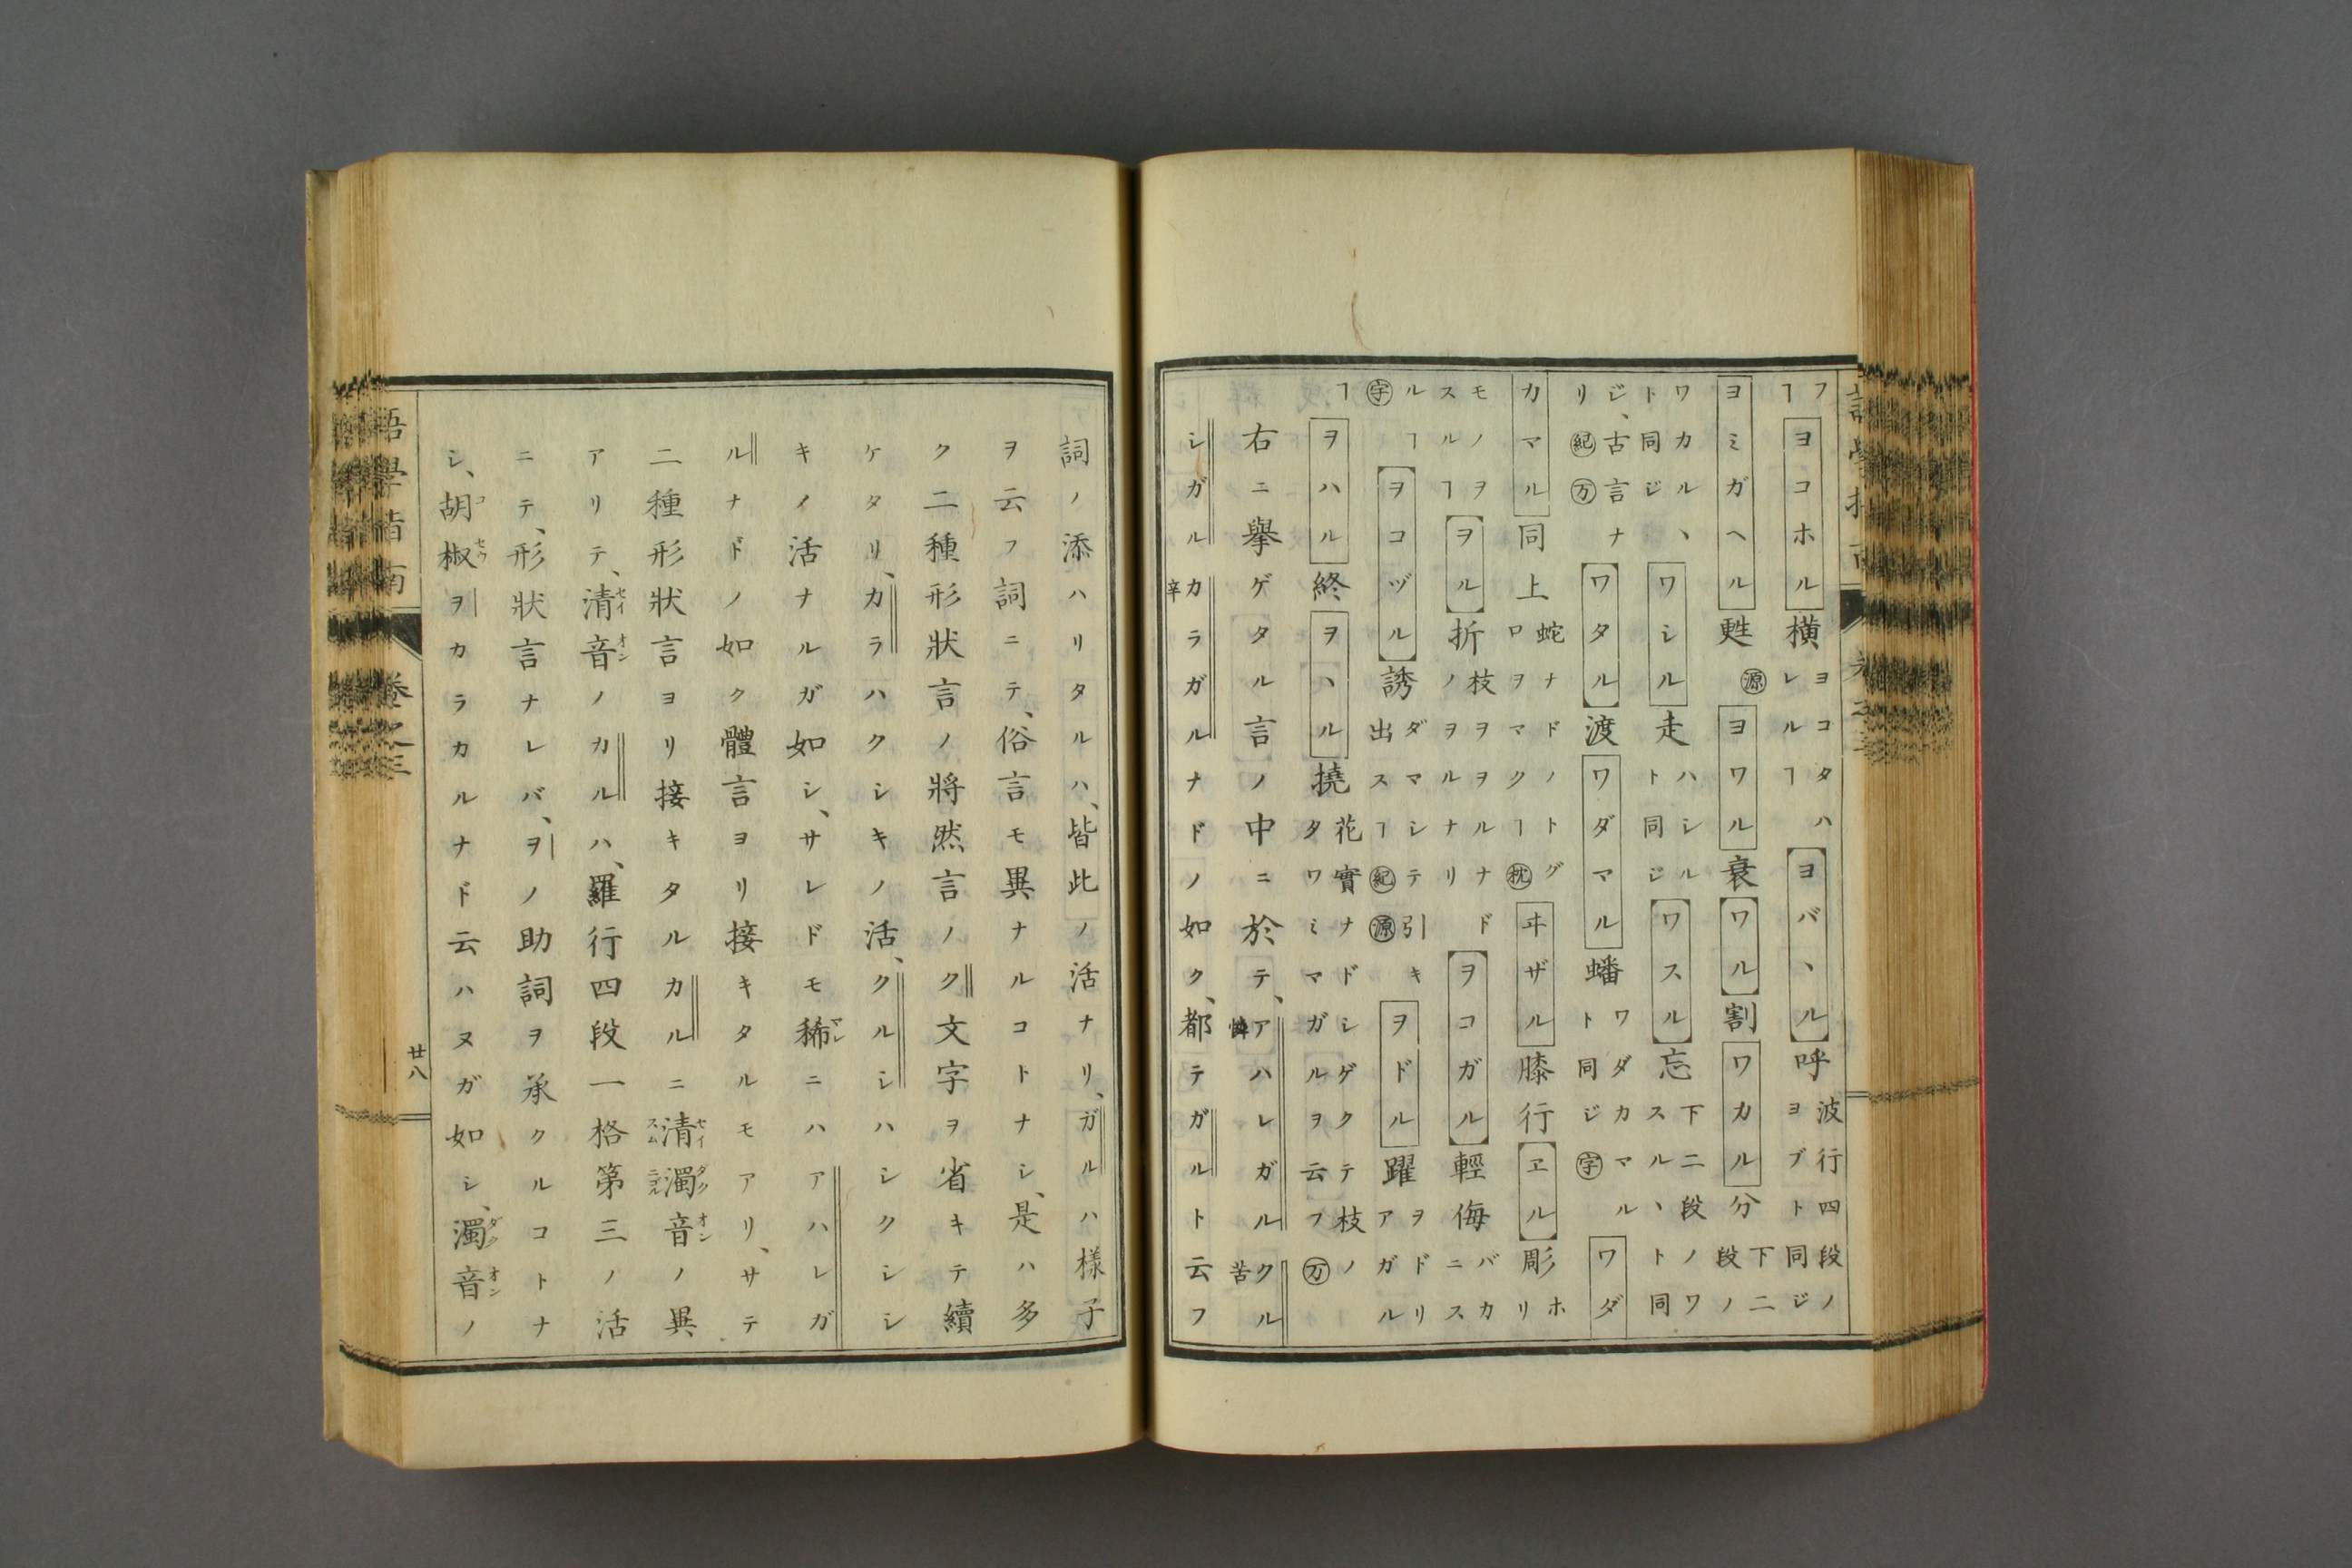 フヿヨコホル横ヨコタハレルヿヨバヽル呼波行四段ノヨブト同ジ
ヨミガヘル甦源ヨワル衰ワル割ワカル分下二段ノ
ワカルヽト同ジワシル走ハシルト同ジワスル忘下二段ノワスルヽト同
ジ、古言ナリ紀万ワタル渡ワダマル蟠ワダカマルト同ジ字ワダ
カマル同上蛇ナドノトグロヲマクヿ枕ヰザル膝行ヱル彫ホリ
モノヲスルヿヲル折枝ヲヲルナドノヲルナリヲコガル輕侮バカニス
ルヿ字ヲコヅル誘ダマシテ引キ出スヿ紀源ヲドル躍ヲドリアガル
ヿヲハル終ヲヽル撓花實ナドシゲクテ枝ノタワミマガルヲ云フ万
右ニ擧ゲタル言ノ中ニ於テ、アハレガル憐クル苦
シガルカラガル辛ナドノ如ク、都テガルト云フ
詞ノ添ハリタルハ、皆此ノ活ナリ、ガルハ樣子
ヲ云フ詞ニテ、俗言モ異ナルコトナシ、是ハ多
ク二種形狀言ノ將然言ノク文字ヲ省キテ續
ケタリ、カラハクシキノ活、クルシハシクシシ
キノ活ナルガ如シ、サレドモ稀レニハアハレガ
ルナドノ如ク體言ヨリ接キタルモアリ、サテ
二種形狀言ヨリ接キタルカルニ清セイスム濁ダクニゴル音オンノ異
アリテ、清セイ音オンノカルハ、羅行四段一格第三ノ活
ニテ、形狀言ナレバ、ヲノ助詞ヲ承クルコトナ
シ、胡コ椒セウヲカラカルナド云ハヌガ如シ、濁ダク音オンノ
語學指南 卷之三 廿八